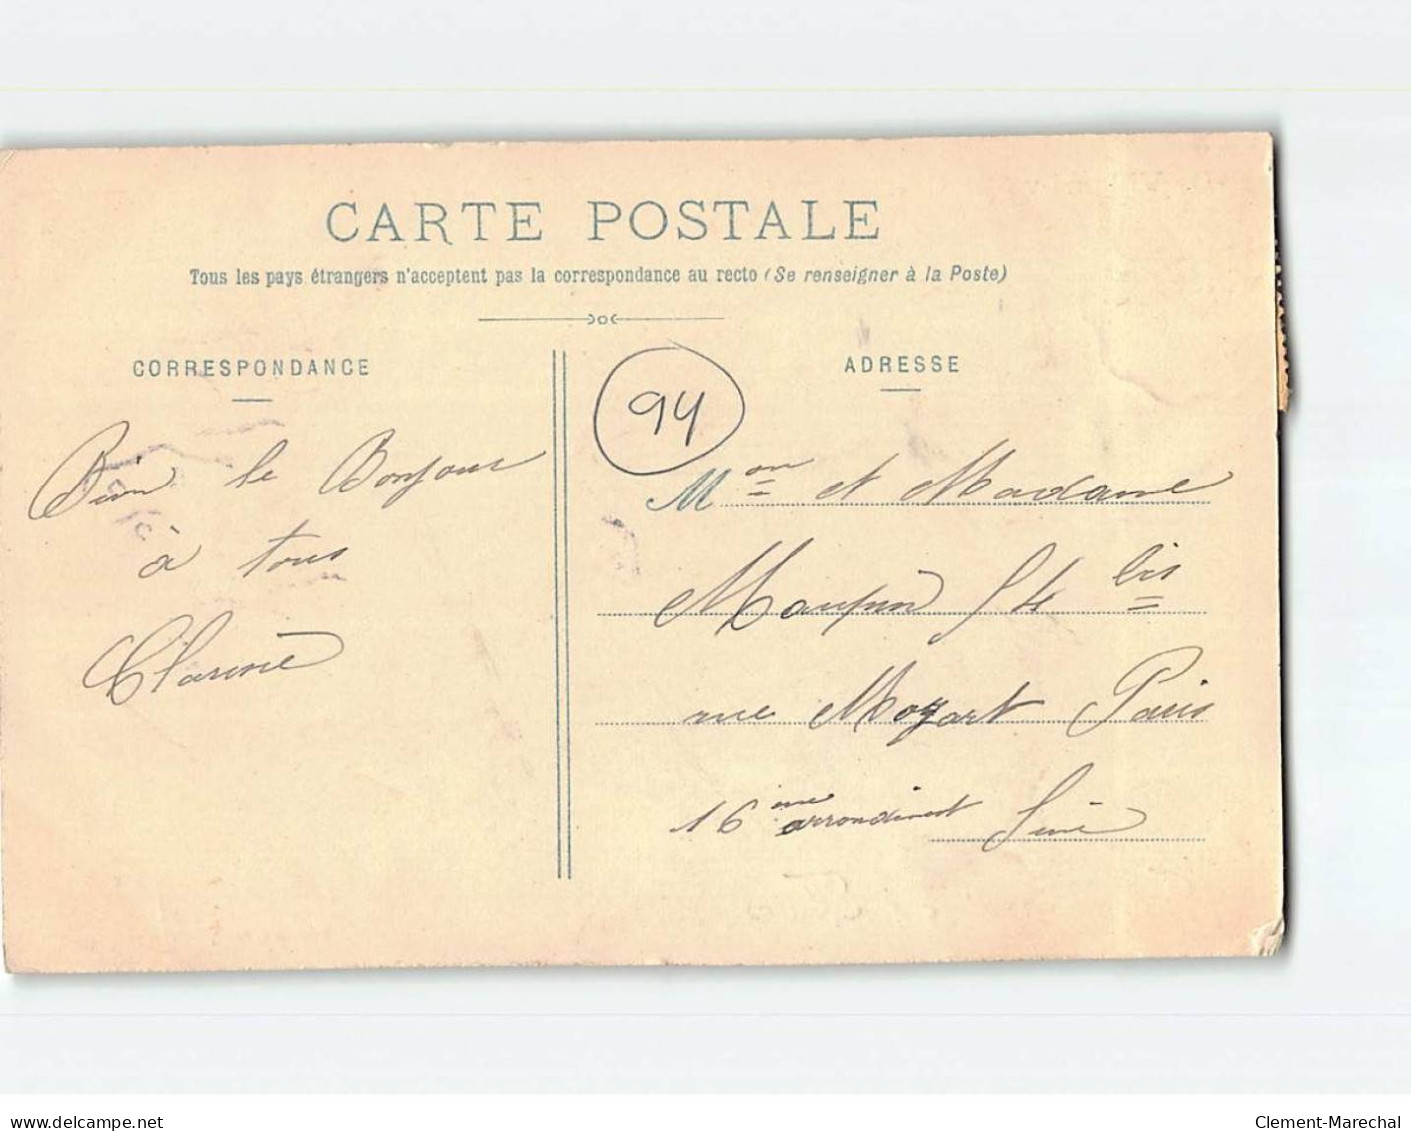 CARTE POSTALE
Tous les pays étrangers n'acceptent pas la correspondance au recto (Se renseigner à la Poste)
CORRESPONDANCE
Bien le Bonjour
à tous
Clarine
94
ADRESSE
Mon et Madame
Maupin 54 bis
rue Mozart Paris
16ème arrondimet Seine
www.delcampe.net
Clement-Marechal